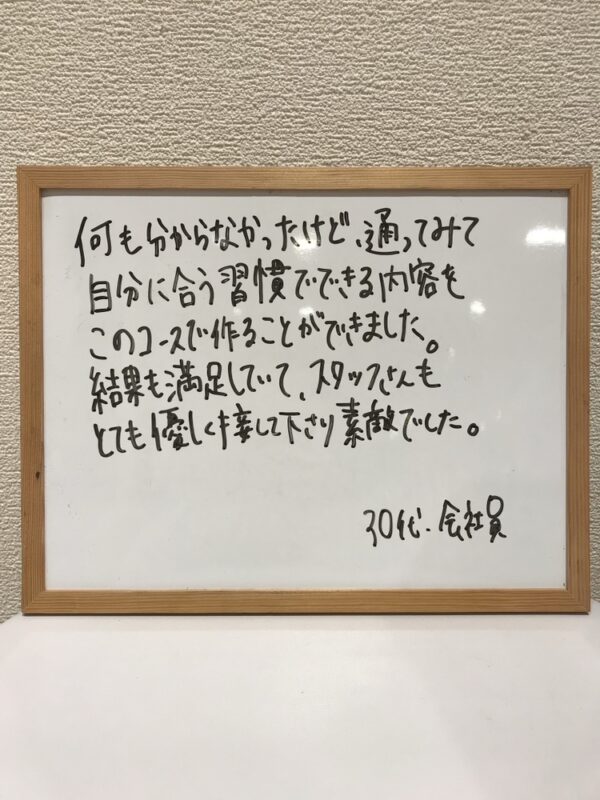 何も分からなかったけど、通ってみて
自分に合う習慣でできる内容を
このコースで作ることができました。
結果も満足していて、スタッフさんも
とても優しく接して下さり素敵でした。
30代・会社員